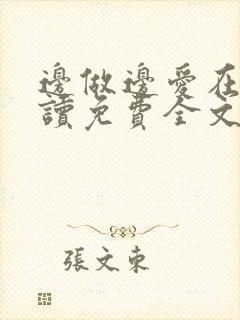 邊做邊愛在
讀免費全文
張文東